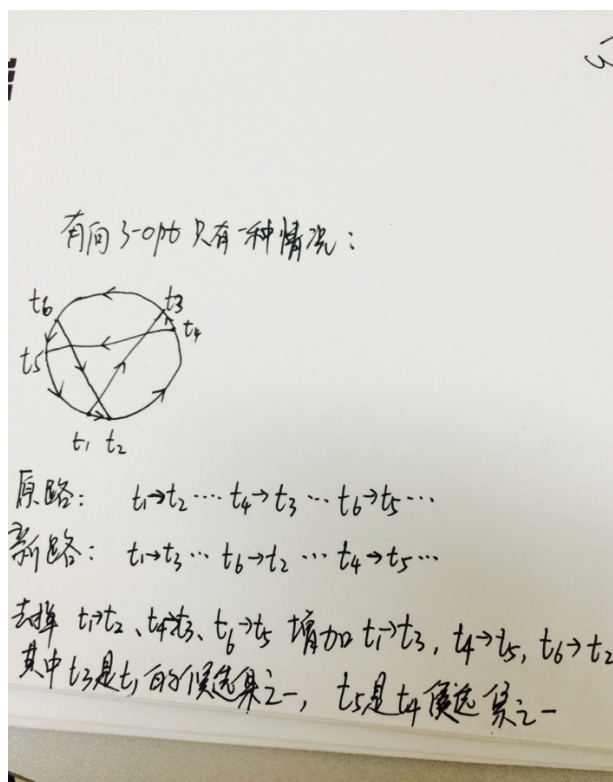 有向3-opt只有一种情况：
t6
t3
t4
t5
t1 t2
原路： t1→t2 … t4→t3 … t6→t5 …
新路： t1→t3 … t6→t2 … t4→t5 …
去掉 t1→t2、t4→t3、t6→t5 增加 t1→t3, t4→t5, t6→t2
其中t3是t1的候选集之一， t5是t4候选集之一